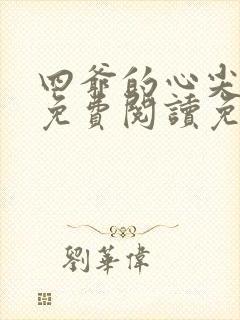 四爺的心尖
免費閱讀免
劉華偉